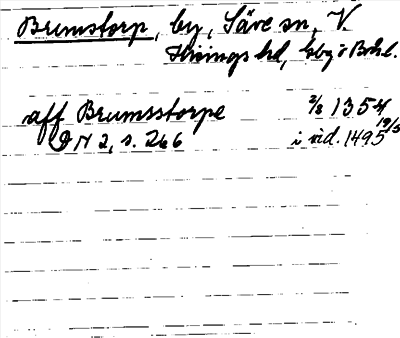 Brumstorp, by, Säve sn, V.
Hisings hd, Gbg o Bohl.
aff Brumsstorpe 2/8 1354
DN 2, s. 266 i vid. 1495 19/5